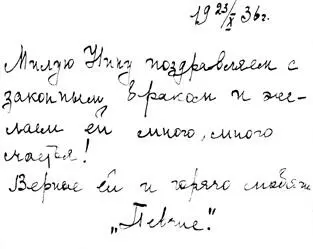 19 23/X 36 г.
Милую Нину поздравляем с
законным браком и же-
лаем ей много, много
счастья!
Верные ей и горячо любящие
„Певчие."